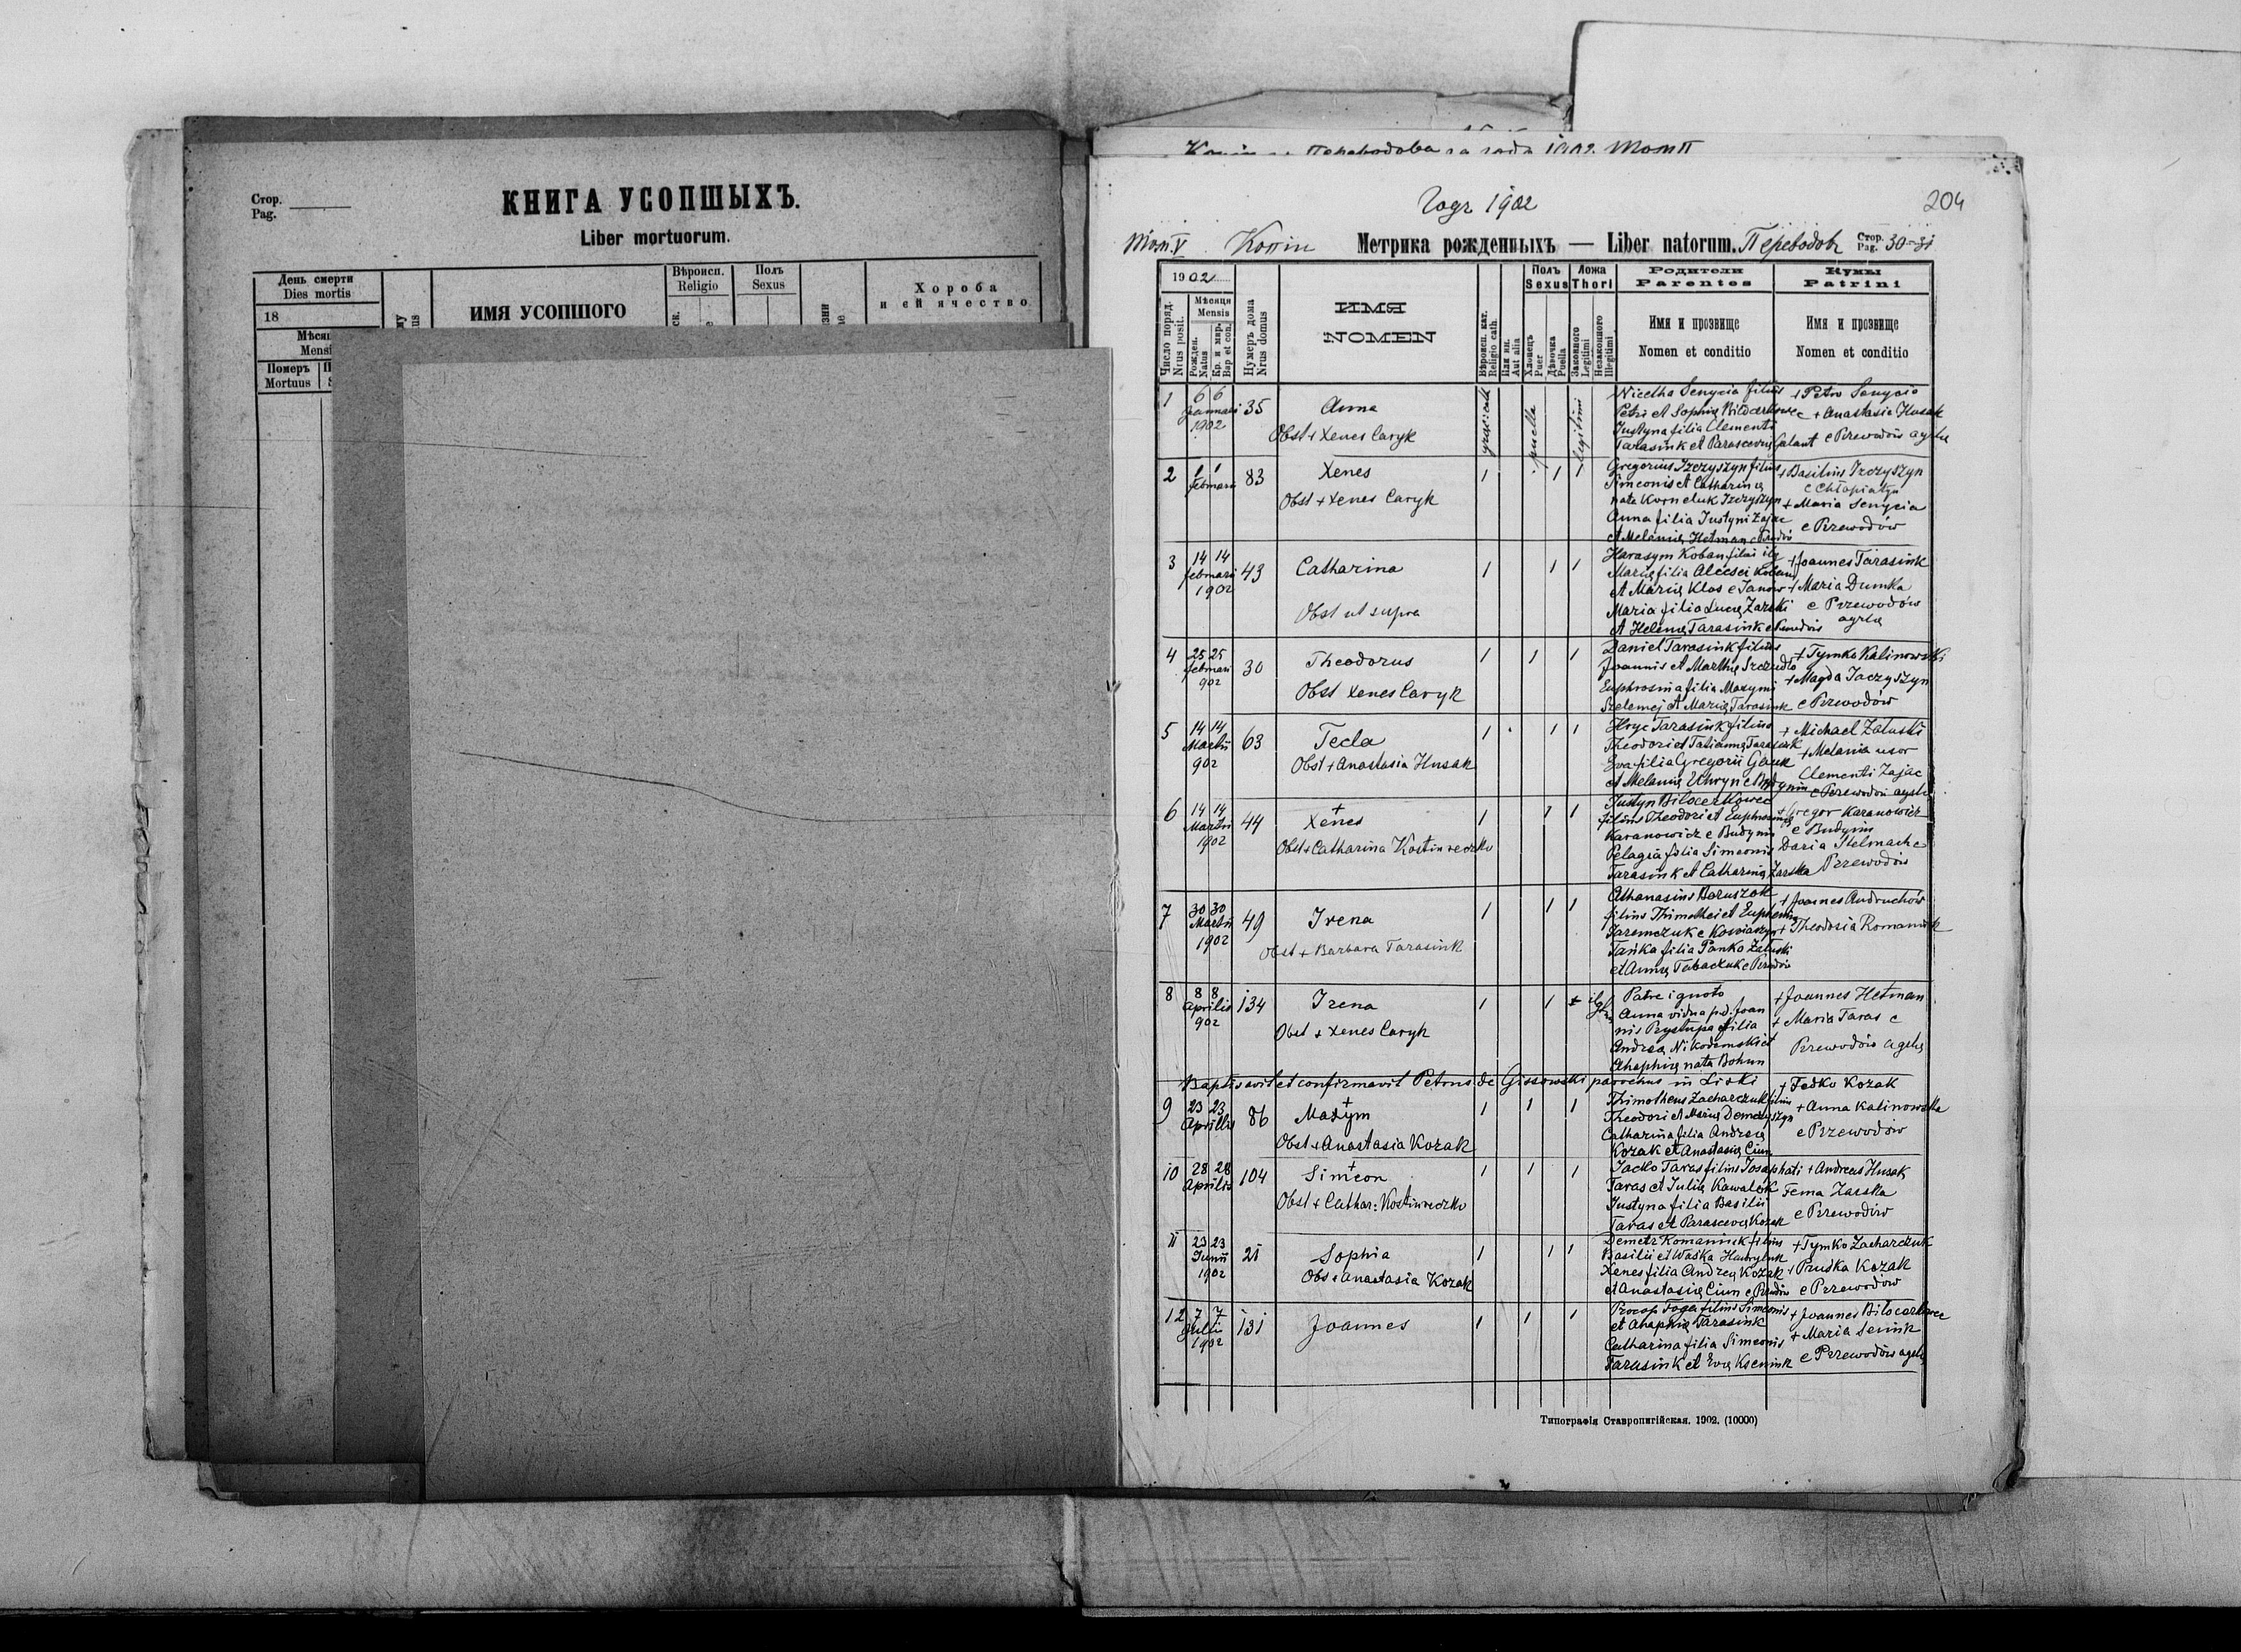 Стор.
Pag.
КНИГА УСОПШЫХЪ.
Liber mortuorum.
День смерти
Dies mortis
18
Померъ
Mortuus
ИМЯ УСОПШОГО
Вѣроисп.
Religio
Полъ
Sexus
Хороба
и ей ячество
Переводова за годъ 1902. Том II
Годъ 1902
204
Том V Копіи Метрика рожденныхъ — Liber natorum. Переводовъ Стор. Pag. 30-31
1902
Число поряд.
Nrus posit.
Мѣсяця
Mensis
Рожден.
Natus
Кр. и мвр.
Bap et con.
Нумеръ дома
Nrus domus
ИМЯ
NOMEN
Вѣроисп. кат.
Religio cath.
Или ин.
Aut alia
Полъ
Sexus
Хлопець
Puer
Дѣвочка
Puella
Ложа
Thori
Законного
Legitimi
Незаконного
Illegitimi
Родители
Parentes
Имя и прозвище
Nomen et conditio
Кумы
Patrini
Имя и прозвище
Nomen et conditio
1
6 6
Januarii
1902
35
Anna
Obst + Xenes Caryk
puella
legitimi
Nicetha Senycia filius
Petri et Sophię Bilocerkowec
Justyna filia Clementi
Tarasiuk et Parascevię Galant
+ Petro Senycio
+ Anastasia Husak
e Przewodów agrlę
2
1 1
februari
83
Xenes
Obst + Xenes Caryk
1 1 1
Gregorius Jzczyszyn filius
Simeonis et Catharinę
nata Korneluk Jzczyszyn
Anna filia Justyni Zajac
et Melanię Hetman
+ Basilius Jzczyszyn
e Chłopiatyn
+ Maria Senycia
e Przewodów
3
14 14
februari
1902
43
Catharina
Obst ut supra
1 1 1
Harasym Koban filius
Marię filia Alecsei Koban
et Marię Klos e Tanow
Maria filia Lucę Zarski
et Helenę Tarasiuk
+ Joannes Tarasiuk
+ Maria Dumka
e Przewodów
agrlę
4
25 25
februari
902
30
Theodorus
Obst Xenes Caryk
1 1 1
Daniel Tarasiuk filius
Joannis et Marthę Szczudło
Euphrosina filia Maxymi
Szelemej et Marię Tarasiuk
+ Tymko Kalinowski
+ Magda Jaczyszyn
e Przewodów
5
14 14
Martii
902
63
Tecla
Obst + Anastasia Husak
1 1 1
Hryc Tarasiuk filius
Theodori et Tatianę Tarasiuk
Eva filia Gregorii Gauk
et Melanię Uhryn
+ Michael Załuski
+ Melania uxor
Clementi Zajac
e Przewodów
6
14 14
Martii
1902
44
+
Xenes
Obst + Catharina Kostiureczko
1 1 1
Justyn Bilocerkowec
filius Theodori et Euphrosinę
Karanowicz e Budynin
Pelagia filia Simeonis
Tarasiuk et Catharinę Zarska
+ Gregor Karanowicz
e Budynin
Daria Stelmach e
Przewodów
7
30 30
Martii
1902
49
Irena
Obst + Barbara Tarasiuk
1 1 1
Athanasius Baruszok
filius Thimothei et Euphemię
Jaremczuk e Kowiazyn
Tańka filia Panko Załuski
et Annę Tabaczuk e Przwdów
+ Joannes Andruchów
+ Theodosia Romaniuk
8
8 8
Aprilis
902
134
Irena
Obst + Xenes Caryk
1 1
Patre ignoto
Anna vidua p.d. Joan
nis Prystupa filia
Andreę Nikodemski et
Ahaphię nata Bohun
+ Joannes Hetman
+ Maria Taras e
Przewodów agrlę
Baptisavit et confirmavit Petrus de Gissowski parochus in Liski
9
23 23
Aprilis
86
+
Maxym
Obst + Anastasia Kozak
1 1 1
Thimotheus Zacharczuk filius
Theodori et Marię Demczyszyn
Catharina filia Andreę
Kozak et Anastasię Ciun
+ Fedko Kozak
+ Anna Kalinowska
e Przewodów
10
28 28
Aprilis
104
+
Simeon
Obst + Cathar: Kostiureczko
1 1 1
Jacko Taras filius Josaphati
Taras et Julię Kawalok
Justyna filia Basilii
Taras et Parascevę Kozak
+ Andreas Husak
Fema Zarska
e Przewodów
11
23 23
Junii
1902
21
Sophia
Obs + Anastasia Kozak
1 1 1
Demetr Romaniuk filius
Basilii et Waśka Hawryluk
Xenes filia Andreę Kozak
et Anastasię Ciun e Przwdów
+ Tymko Zacharczuk
+ Pruśka Kozak
e Przewodów
12
7 7
Julii
1902
131
Joannes
1 1 1
Procop Foga filius Simeonis
et Ahaphię Tarasiuk
Catharina filia Simeonis
Tarasiuk et Evę Kseniuk
+ Joannes Bilocerkowec
+ Maria Seniuk
e Przewodów agrlę
Типографія Ставропигійская. 1902. (10000)